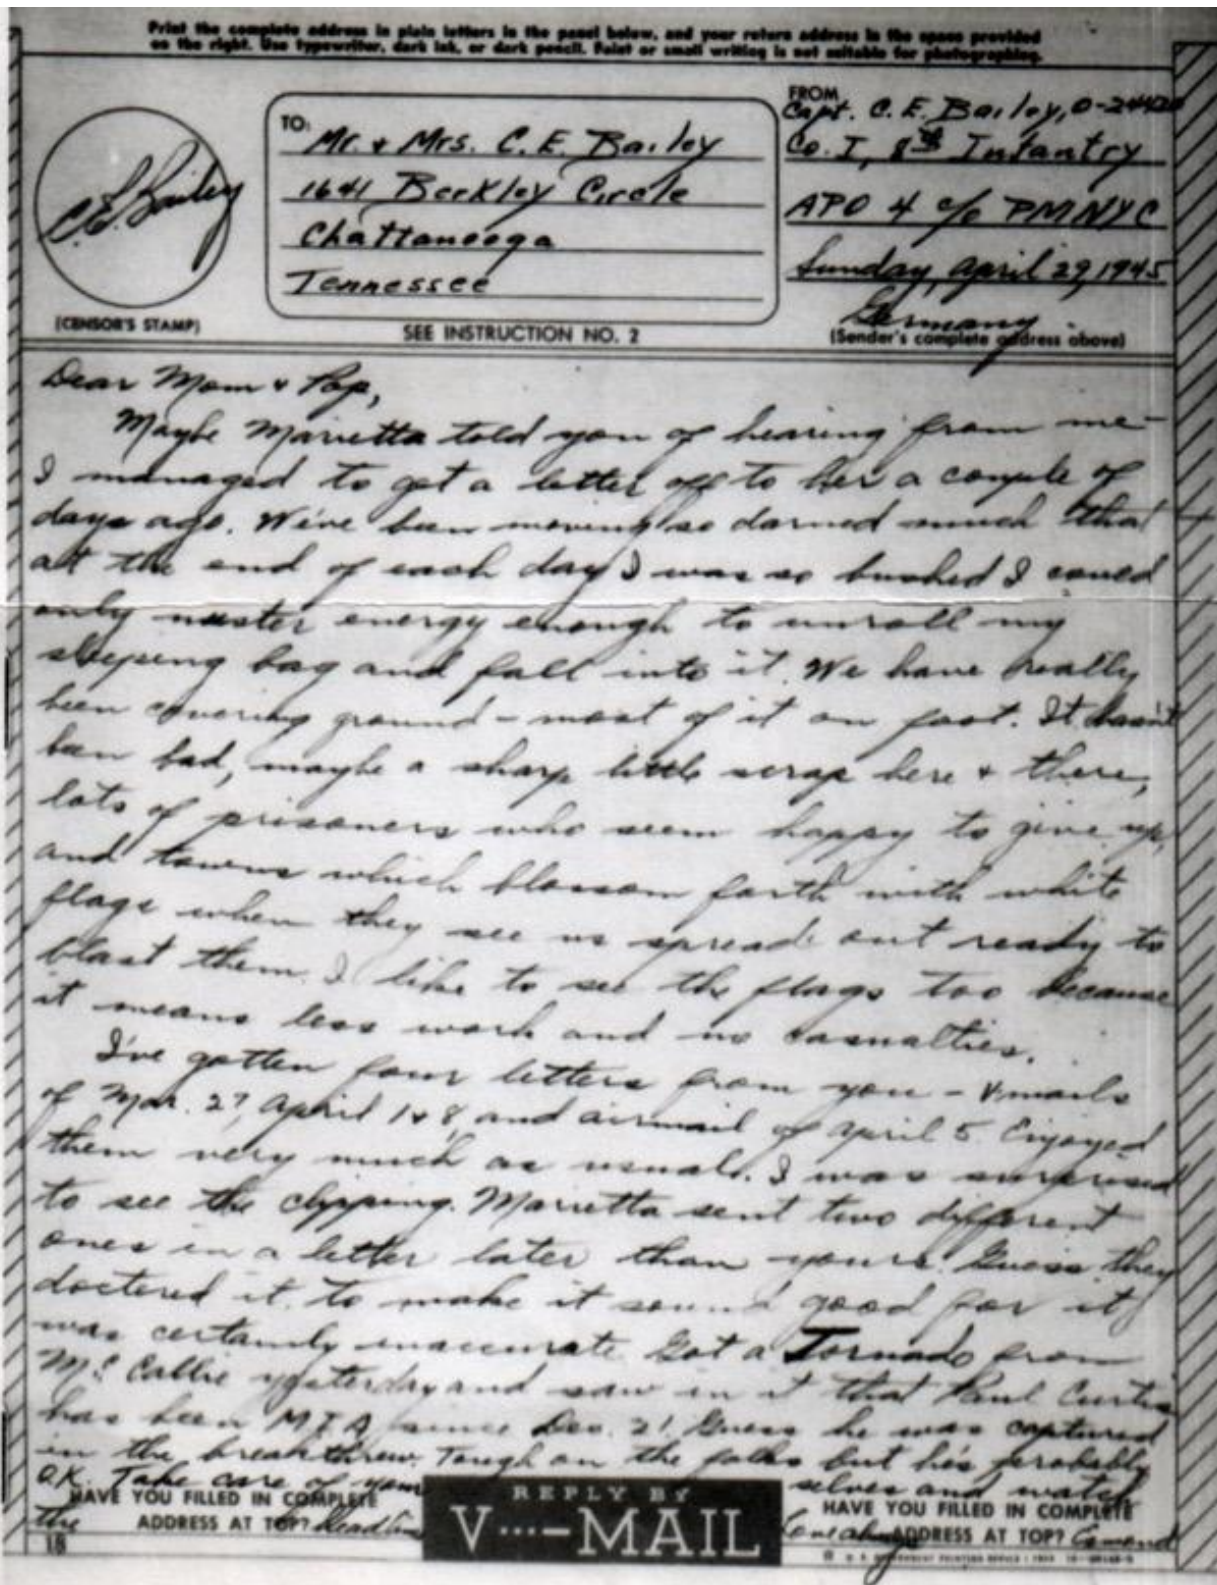 Print the complete address in plain letters in the panel below, and your return address in the space provided
on the right. Use typewriter, dark ink, or dark pencil. Faint or small writing is not suitable for photographing.
TO:
Mr. + Mrs. C. E. Bailey
1641 Berkley Circle
Chattanooga
Tennessee
FROM
Capt. C. E. Bailey,
Co. I, 8th Infantry
APO 4 c/o PMNYC
Sunday, April 29, 1945
Germany.
(Sender's complete address above)
C. E. Bailey
(CENSOR'S STAMP)
SEE INSTRUCTION NO. 2
Dear Mom + Pop,
Maybe Marietta told you of hearing from me -
I managed to get a letter off to her a couple of
days ago. We've been moving so darned much that
at the end of each day I was so bushed I could
only muster energy enough to unroll my
sleeping bag and fall into it. We have really
been covering ground - most of it on foot. It hasn't
been bad, maybe a sharp little scrap here + there,
lots of prisoners who seem happy to give up,
and towns which blossom forth with white
flags when they see us spread out ready to
blast them. I like to see the flags too because
it means less work and no casualties.
I've gotten four letters from you - Vmails
of Mar. 27, April 1 + 8, and airmail of April 5. Enjoyed
them very much as usual. I was surprised
to see the clipping. Marietta sent two different
ones in a letter later than yours. Guess they
doctored it to make it sound good for it
was certainly inaccurate. Got a Tornado from
McCallie yesterday and saw in it that Paul Curtis
has been MIA since Dec. 21. Guess he was captured
in the breakthrew. Tough on the folks but he's probably
O.K. Take care of yourselves and watch
the headlines
Love always
HAVE YOU FILLED IN COMPLETE
ADDRESS AT TOP?
REPLY BY
V···—MAIL
HAVE YOU FILLED IN COMPLETE
ADDRESS AT TOP?
18